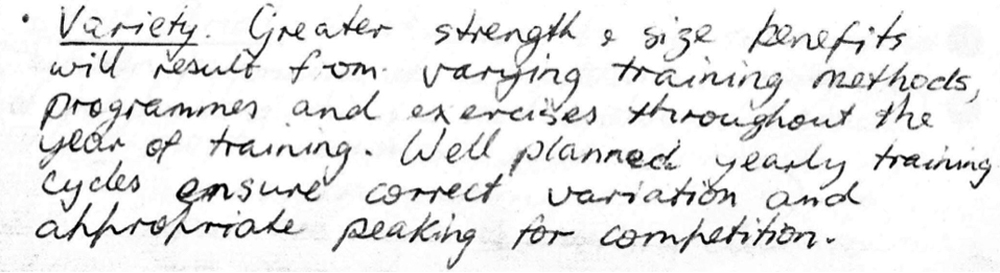 • Variety. Greater strength & size benefits
will result from varying training methods,
programmes and exercises throughout the
year of training. Well planned yearly training
cycles ensure correct variation and
appropriate peaking for competition.